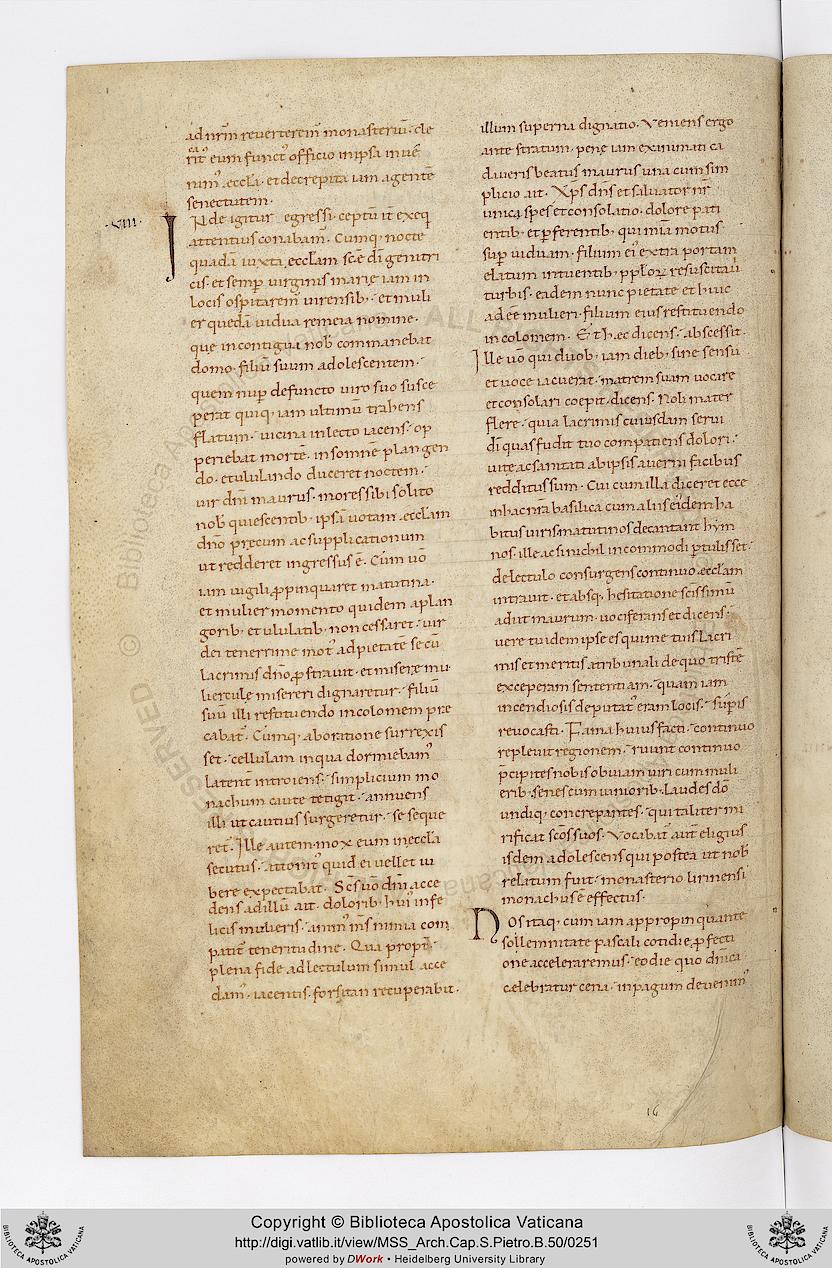 ad nr̄m reverterem̄ monasteriū. cle
rit᷒ eum funct᷒ officio in ipsa inue
nim᷒ eccla. et decrepita iam agentē
senectutem.
·VIII· INde igitur egressi. ceptū it̄ exeq
attentius conabam᷒. Cumq; nocte
quadā iuxta ecclam sc̄e dī genitri
cis. et semp̄ virginis marię iam in
locis ospitarem᷒ uirensib;. et muli
er quedā uidua remeia nomine.
que in contigua nob̄ commanebat
domo. filiū suum adolescentem.
quem nup̄ defuncto uiro suo susce
perat quiq; iam ultimū trahens
flatum. uicina in lecto iacens. op
periebat mortē. insomnē plangen
do. et ululando duceret noctem.
uir dn̄i maurus. more sibi solito
nob̄ quiescentib;. ipsā uotam. ecclam
dn̄o precum ac supplicationum
ut redderet ingressus ē. Cum uō
iam uigiliis ꝓpinquaret matutina.
et mulier momento quidem a plan
gorib;. et ululatib; non cessaret. uir
dei tenerrime mot᷒ ad pietatē se cū
lacrimis dn̄o ꝓstrauit. et miserę mu
lierculę misereri dignaretur. filiū
suū illi restituendo incolomem pre
cabat᷒. Cumq; ab oratione surrexis
set. cellulam in qua dormiebam᷒
latent̄ introiens. simplicium mo
nachum caute tetigit. annuens
illi ut cautius surgeret. se seque
ret. Ille autem mox eum in eccla
secutus. attonit᷒ quid ei uellet iu
bere expectabat. Sc̄s uō dn̄i acce
dens ad illū ait. dolorib; hui᷒ infe
licis mulieris. anim᷒ m̄s nimia com
patit᷒ teneritudine. Qua propt̄.
plena fide ad lectulum simul acce
dam᷒. iacentis. forsitan recuperabit.
illum superna dignatio. Veniens ergo
ante stratum. pene iam exanimati ca
daueris beatus maurus una cum sim
plicio ait. Xp̄s dn̄s et saluator nr̄
unica spes et consolatio. dolore pati
entib; et ꝑferentib;. qui mīa motus
sup̄ uiduam. filium ei᷒ extra portam
elatum intuentib; pp̄lorꝫ resuscitaū
turbis. eadem nunc pietate et huic
adēe mulieri. filium eius restituendo
incolomem. Et hęc dicens. abscessit.
Ille uō qui duob; iam dieb; sine sensu
et uoce iacuerat. matrem suam uocare
et consolari coepit. dicens. Noli mater
flere. quia lacrimis cuiusdam serui
dī quas fudit tuo compatiens dolori.
uite ac sanitati ab ipsis auerni facibus
redditus sum. Cui cum illa diceret ecce
in hac nr̄a basilica cum aliis eidem ha
bitus uiris matutinos decantant hym
nos. ille ac si nichil incommodi ꝑtulisset.
de lectulo consurgens continuo. ecclam
intrauit. et absq; hesitatione sc̄issimū
adiit maurum. uociferans et dicens.
uere tu idem ipse es qui me tuis lacri
mis et meritis a tribunali de quo tristē
exceperam sententiam. quam iam
incendiosis deputat᷒ eram locis. sup̄is
reuocasti. Fama huius facti. continuo
repleuit regionem. ruunt continuo
p̄cipites nobis obuiam uiri cum muli
erib; senes cum iuniorib; Laudes dō
undiq; concrepantes. qui taliter mi
rificat sc̄os suos. Vocabat᷒ aut̄ eligius
isdem adolescens qui postea ut nob̄
relatum fuit. monasterio lirinensi
monachus ē effectus.
NOs itaq; cum iam appropinquante
sollemnitate pascali cotidie ꝓfecti
one acceleraremus. eo die quo dn̄ica
celebratur cena. in pagum deuenim᷒
16
Copyright © Biblioteca Apostolica Vaticana
http://digi.vatlib.it/view/MSS_Arch.Cap.S.Pietro.B.50/0251
powered by DWork • Heidelberg University Library